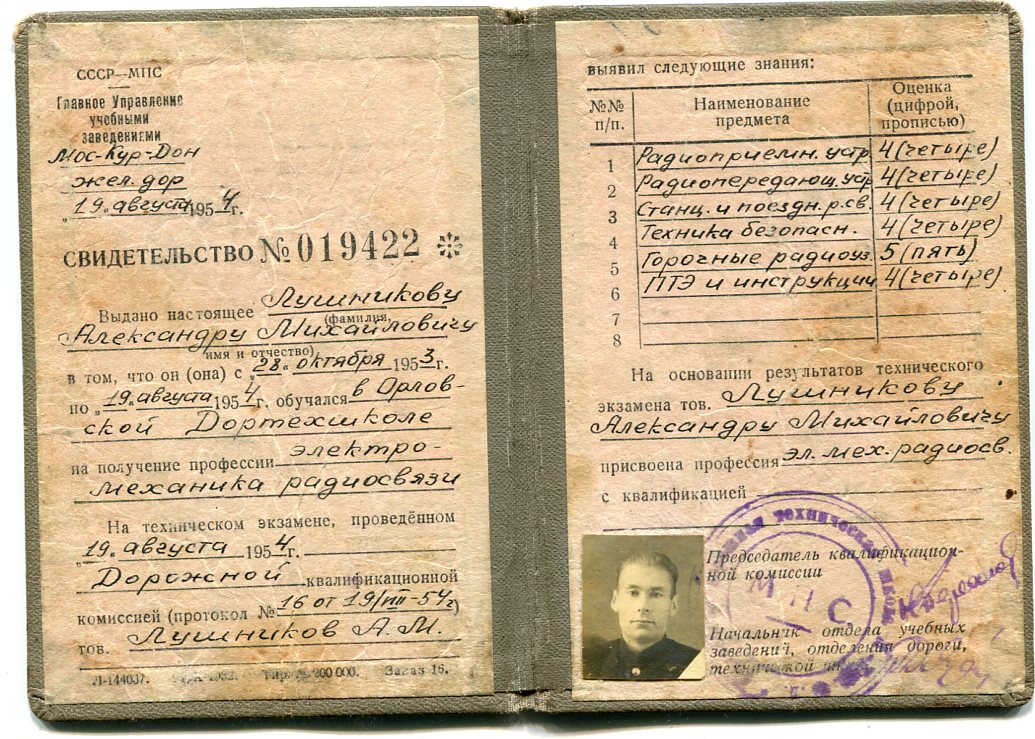 СССР—МПС
Главное Управление
учебными
заведениями
Мос-Кур-Дон
жел. дор
„19„ августа 1954г.
СВИДЕТЕЛЬСТВО № 019422
Выдано настоящее Лушникову
(фамилия,
Александру Михайловичу
имя и отчество)
в том, что он (она) с „28„ октября 1953г.
по „19„ августа 1954г. обучался в Орлов-
ской Дортехшколе
на получение профессии электро-
механика радиосвязи
На техническом экзамене, проведённом
„19„ августа 1954г.
Дорожной квалификационной
комиссией (протокол № 16 от 19/VIII-54г)
тов. Лушников А. М.
Л-144037. 200 000. Заказ 16.
выявил следующие знания:
№№ п/п. Наименование предмета Оценка (цифрой, прописью)
1 Радиоприемн. устр. 4 (четыре)
2 Радиопередающ. устр 4 (четыре)
3 Станц. и поездн. р. св. 4 (четыре)
4 Техника безопасн. 4 (четыре)
5 Горочные радиоуз. 5 (пять)
6 ПТЭ и инструкции 4 (четыре)
7
8
На основании результатов технического
экзамена тов. Лушникову
Александру Михайловичу
присвоена профессия эл. мех. радиосв.
с квалификацией
Председатель квалификацион-
ной комиссии
МПС
Начальник отдела учебных
заведений, отделения дороги,
технической